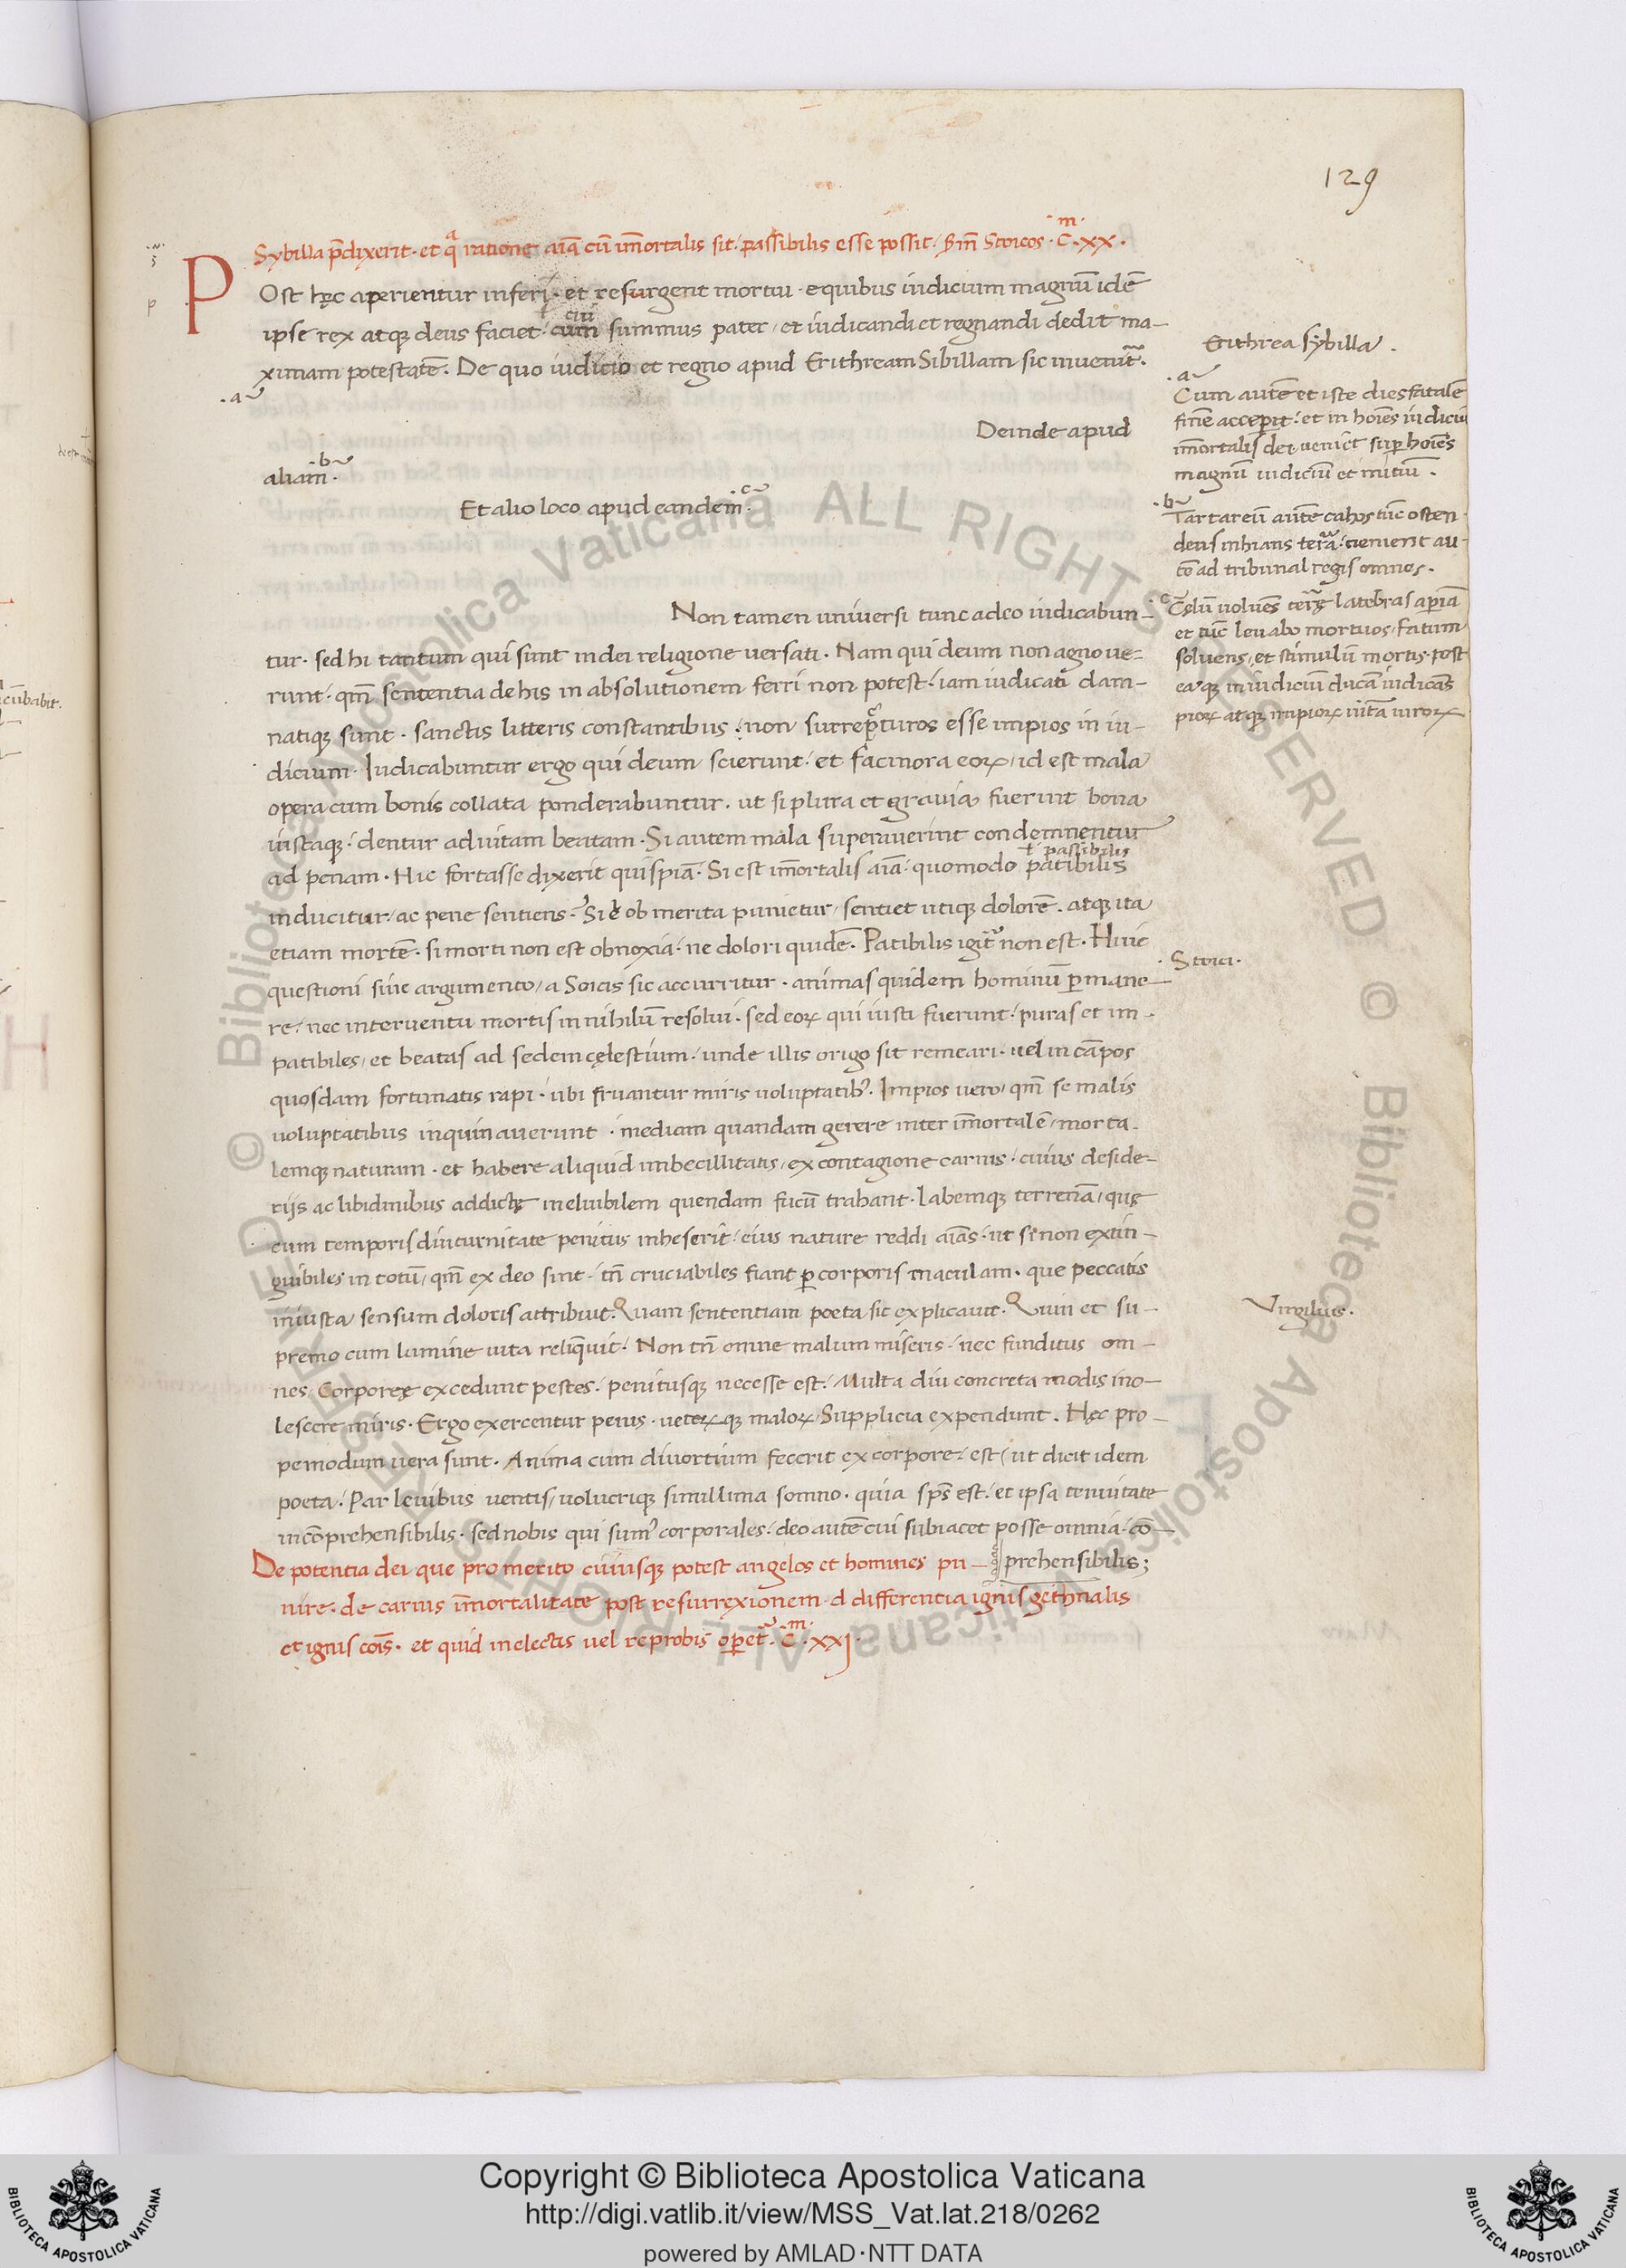 129
Sybilla p̄dixerit · et qᵃ ratione aīa cū īmortalis sit · passibilis esse possit · s̄m Stoicos · C̄ᵐ · XX ·
POst hęc aperientur inferi · et resurgent mortui · e quibus iudicium magnū idē
ł cui
ipse rex atqꝫ deus faciet · cum summus pater / et iudicandi et regnandi dedit ma-
ximam potestatē · De quo iudicio et regno apud Erithream Sibillam sic inuenit᷒ ·
Erithrea Sybilla ·
· a ·
· a ·
Cum autē et iste dies fatalē
finē acceperit · et in hoīes iudiciū
īmortalis dei · ueniet sup hoīes
magnū iudiciū et initiū ·
Deinde apud
aliam · b ·
Et alio loco apud eandem · c ·
· b ·
Tartareū autē cahos tūc osten-
dens inhians terra · uenient au-
tē ad tribunal regis omnes ·
· c ·
Cęlū voluēs terrę latebras apiā
et tūc leuabo mortuos · fatum
soluens, et stimulū mortis · post
eaqꝫ in iudiciū ducā iudicās
pioꝝ atqꝫ impioꝝ uitā uiroꝝ
Non tamen uniuersi tunc a deo iudicabun-
tur · sed hi tantum qui sunt in dei religione uersati · Nam qui deum non agnoue-
runt · qm̄ sententia de his in absolutionem ferri non potest · iam iudicati dam-
natiqꝫ sunt · sanctis litteris constantibus · non surrepturos esse impios in iu-
dicium · Iudicabuntur ergo qui deum scierunt · et facinora eoꝝ / id est mala
opera cum bonis collata ponderabuntur · ut si plura et grauia fuerint bona
iustaqꝫ · dentur ad uitam beatam · Si autem mala superauerint condemnentur
ł passibilis
ad penam · Hic fortasse dixerit quispiā · Si est īmortalis aīa · quomodo patibilis
inducitur / ac pene sentiens · Si ē ob merita punietur / sentiet utiqꝫ dolorē · atqꝫ ita
etiam mortē · si morti non est obnoxia · ne dolori quidē · Patibilis igit᷒ non est · Huic
Stoici ·
questioni siue argumento / a Soicis sic accurritur · animas quidem hominū pmane-
re · nec interuentu mortis in nihilū resolui · sed eoꝝ qui iusti fuerunt · puras et im-
patibiles / et beatas ad sedem cęlestium · unde illis origo sit remeari · uel in cāpos
quosdam fortunatis rapi · ubi fruantur miris uoluptatibꝰ · Impios uero / qm̄ se malis
uoluptatibus inquinauerunt · mediam quandam gerere inter īmortalē / morta-
lemqꝫ naturam · et habere aliquid imbecillitatis / ex contagione carnis · cuius deside-
rijs ac libidinibus addictę ineluibilem quendam fucū trahant · labemqꝫ terrenā / quę
cum temporis diuturnitate penitus inheserit · eius nature reddi aīas · ut si non extin-
guibiles in totū / qm̄ ex deo sint · tn̄ cruciabiles fiant p corporis maculam · que peccatis
inusta sensum doloris attribuit · Quam sententiam poeta sic explicauit · Quin et su-
Virgilius ·
premo cum lumine uita reliquit · Non tn̄ omne malum miseris · nec funditus om-
nes Corporeę excedunt pestes · penitusqꝫ necesse est · Multa diu concreta modis ino-
lescere miris · Ergo exercentur penis · ueteꝝqꝫ maloꝝ / Supplicia expendunt · Hęc pro-
pemodum uera sunt · Anima cum diuortium fecerit ex corpore · est / ut dicit idem
poeta · Par leuibus uentis, uolucriqꝫ simillima somno · quia sp̄s est · et ipsa tenuitate
incōprehensibilis · sed nobis qui sumꝰ corporales · deo autē cui subiacet posse omnia · cō-
prehensibilis;
De potentia dei que pro merito cuiusqꝫ potest angelos et homines pu-
nire · de carnis īmortalitate post resurrexionem · d differentia ignis gethnalis
et ignis cōis · et quid in electis uel reprobis opet᷒ · C̄ᵐ · XXI ·
Copyright © Biblioteca Apostolica Vaticana
http://digi.vatlib.it/view/MSS_Vat.lat.218/0262
powered by AMLAD·NTT DATA
BIBLIOTECA APOSTOLICA VATICANA
BIBLIOTECA APOSTOLICA VATICANA
© Biblioteca Apostolica Vaticana ALL RIGHTS RESERVED © Biblioteca Apostolica Vaticana ALL RIGHTS RESERVED